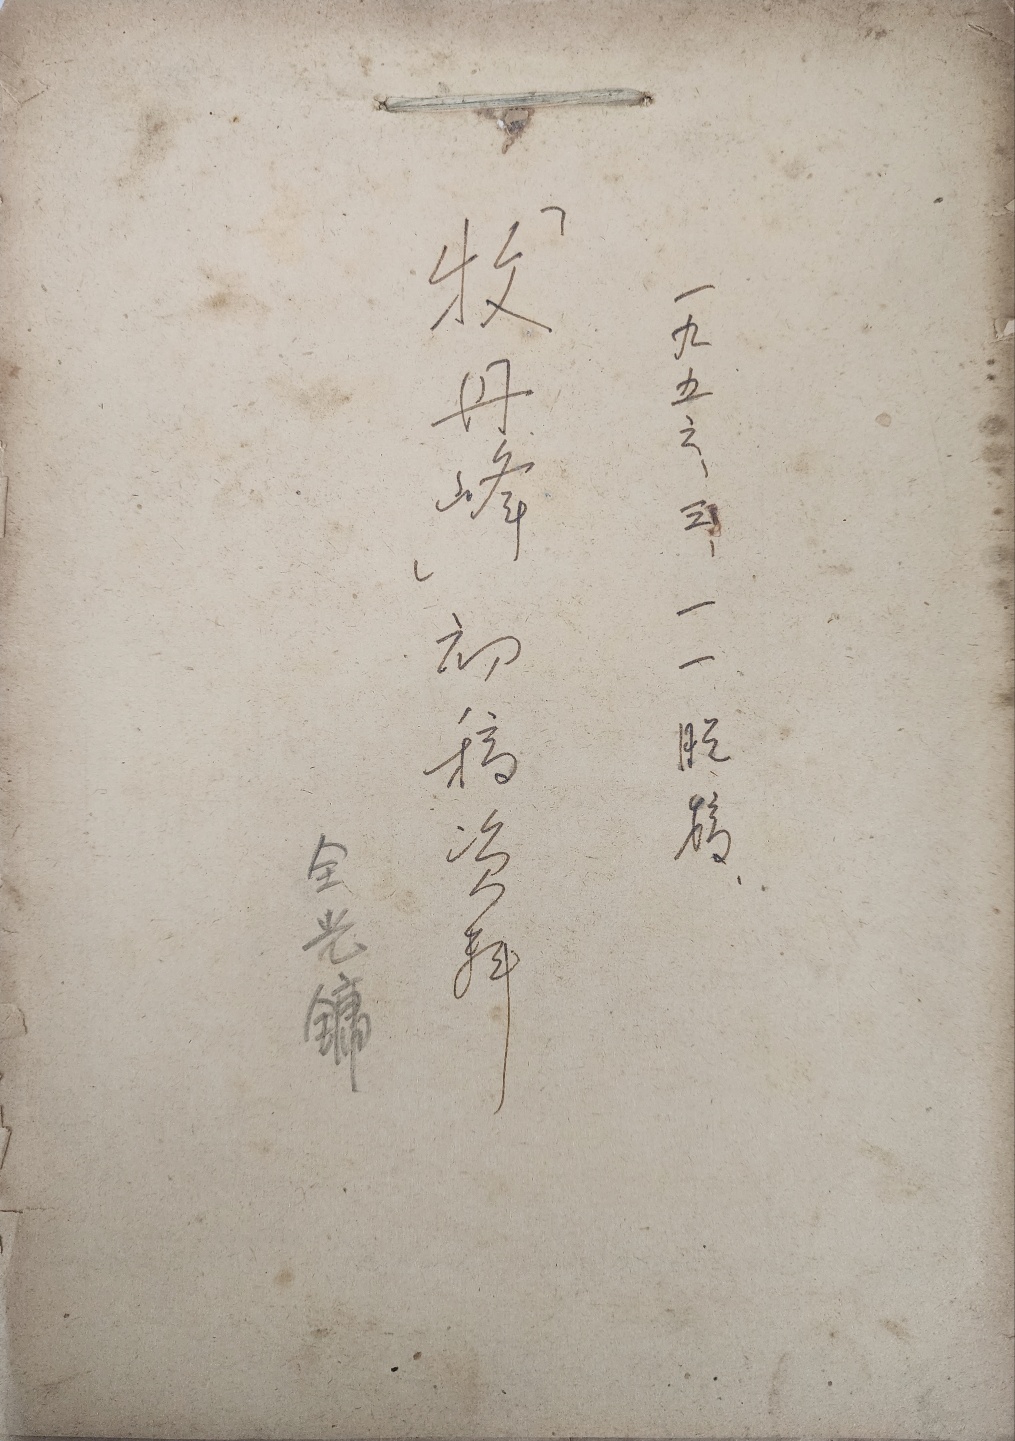 一九五六、三、一一脱稿、
「牧丹峰」初稿资料
全光鏞